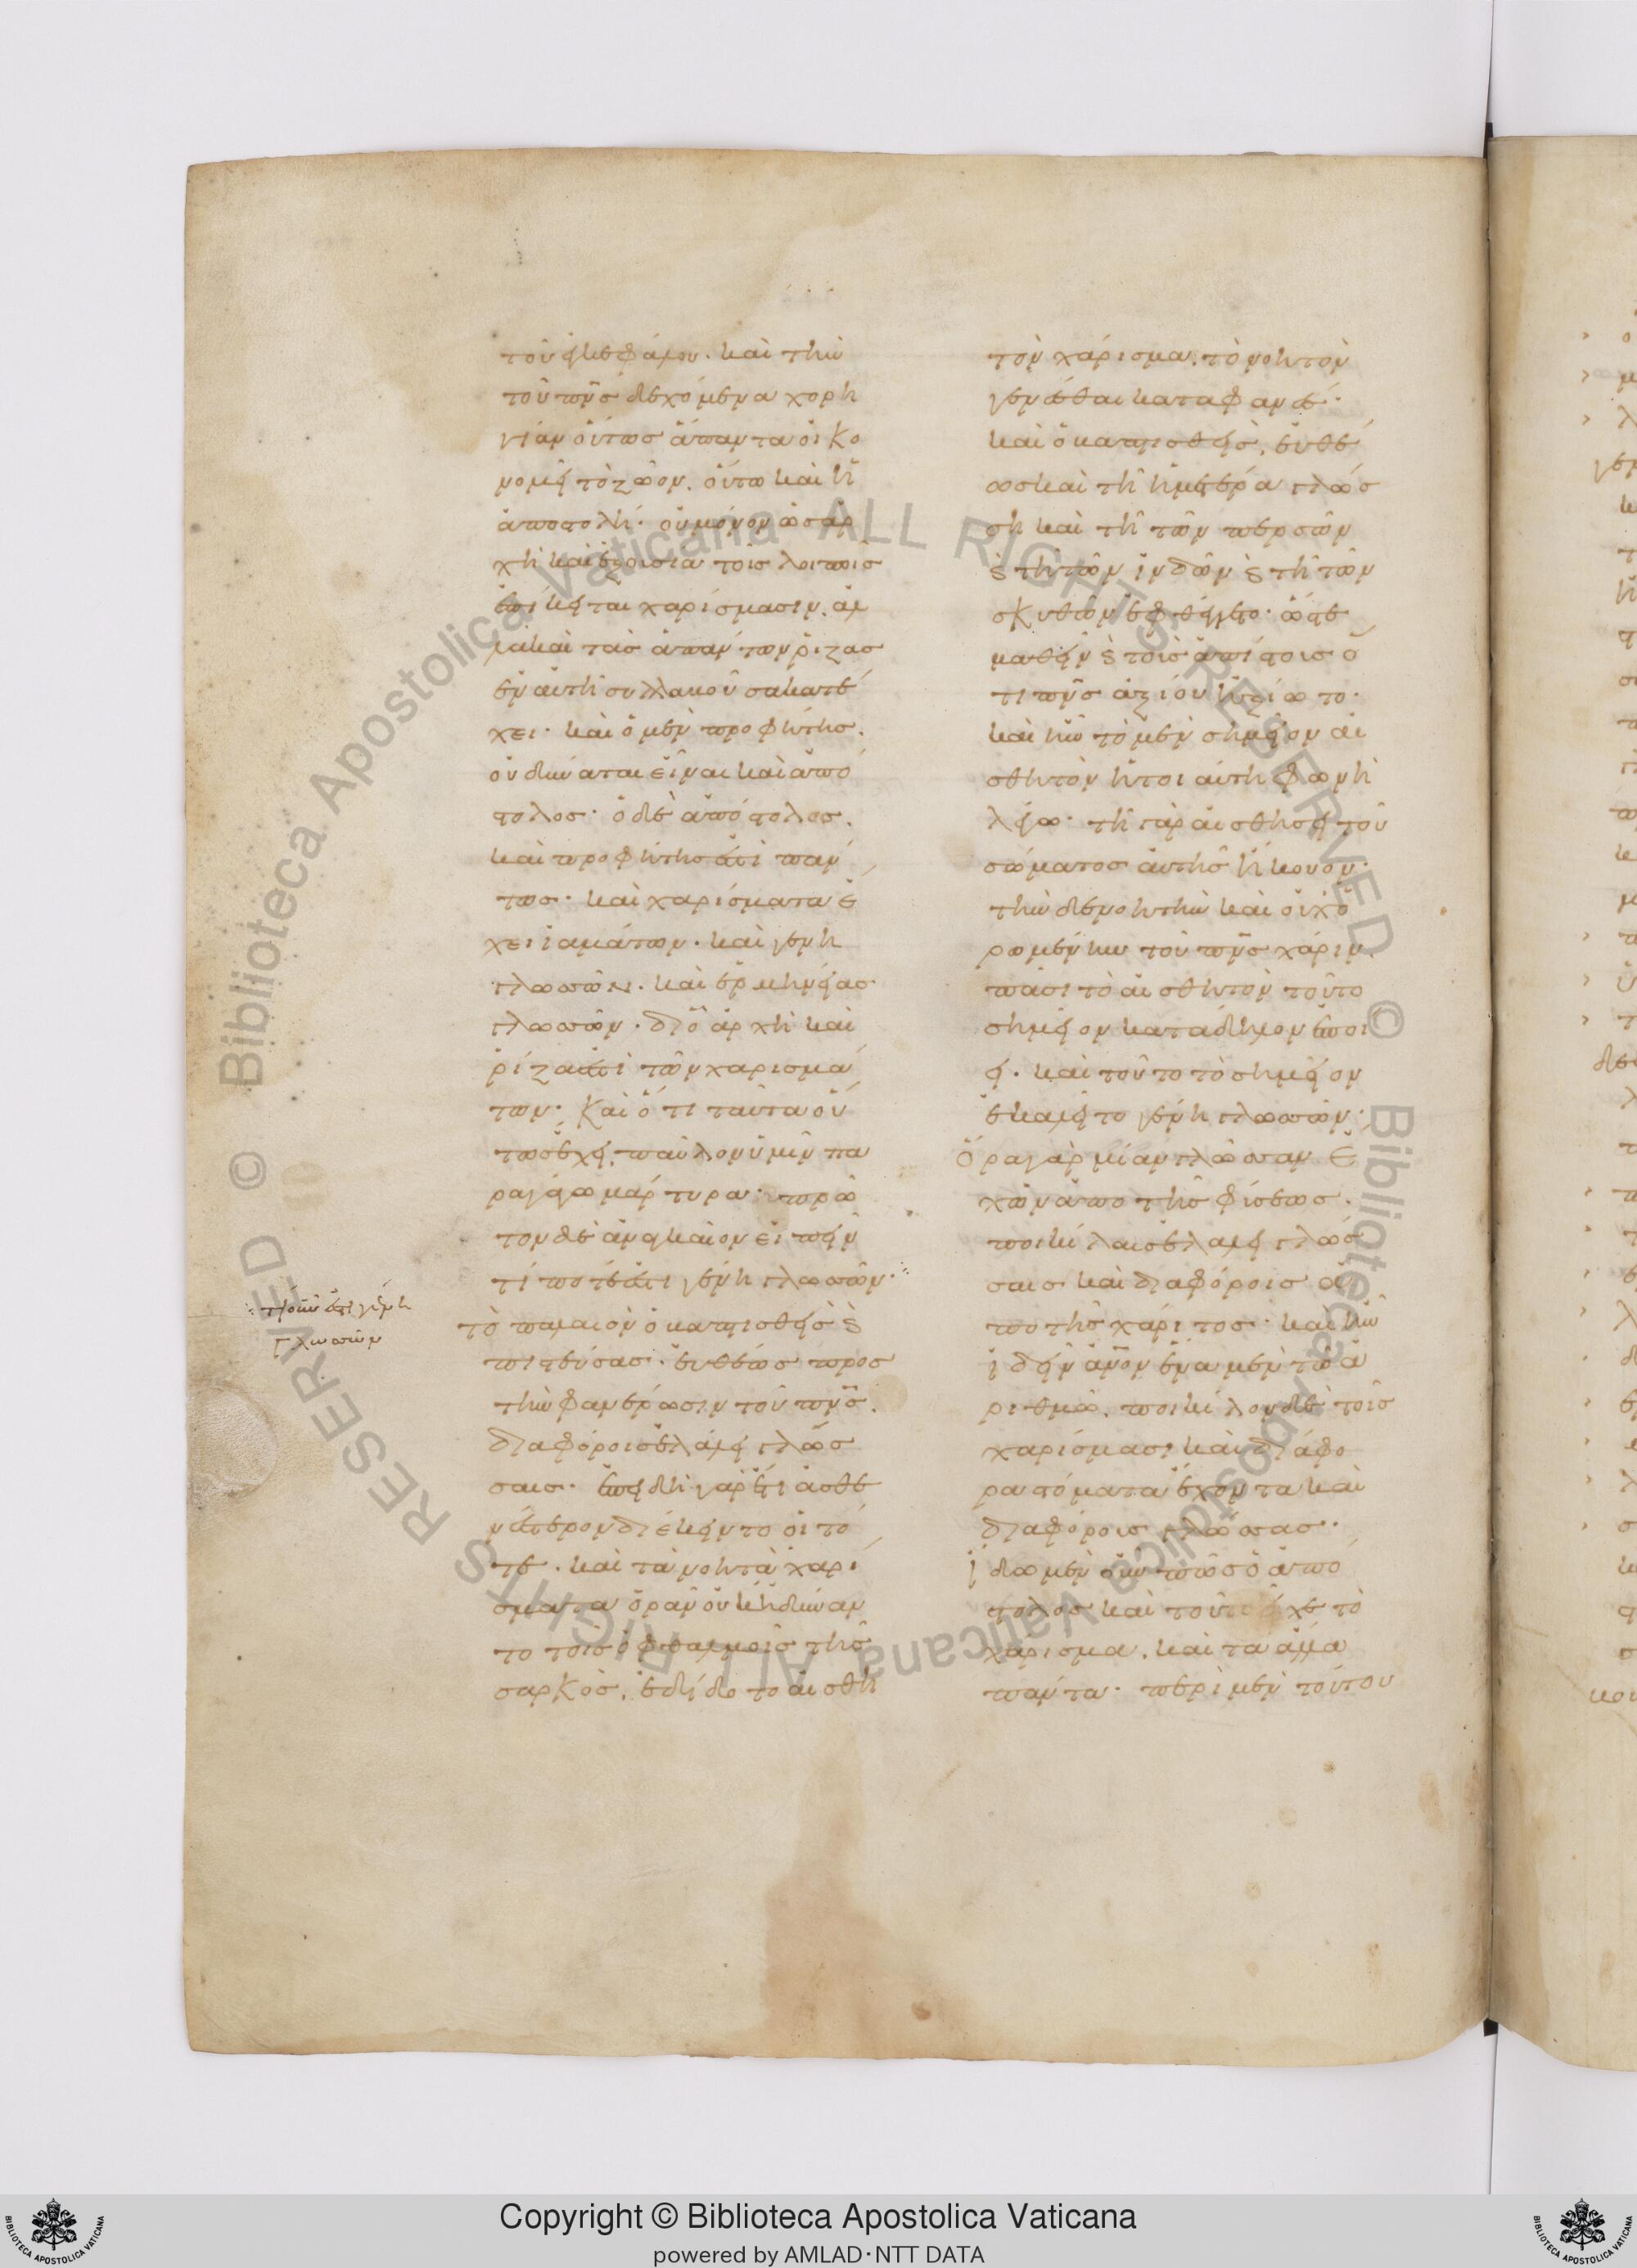 τοῦ ἐγκεφάλου. καὶ τὴν
τοῦ πνς δεχόμενα χορη
γίαν οὕτως ἅπαντα οἰκο
νομεῖ τὸ ζῶον. οὕτω καὶ ἡ
ἀποστολή· οὐ μόνον ὡς ἀρ
χὴ καὶ ἐξουσία τοῖς λοιποῖς
ἐπίκειται χαρίσμασιν. ἀλ
λὰ καὶ τὰς ἁπάντων ῥίζας
ἐν αὐτῇ συλλαβοῦσα κατέ
χει· καὶ ὁ μὲν προφήτης.
οὐ δύναται εἶναι καὶ ἀπό
στολος· ὁ δὲ ἀπόστολος.
καὶ προφήτης ἐστὶ πάν
τως· καὶ χαρίσματα ἔ
χει ἰαμάτων. καὶ γένη
γλωσσῶν. καὶ ἑρμηνείας
γλωσσῶν. διὸ ἀρχὴ καὶ
ῥίζα ἐστὶ τῶν χαρισμά
των· Καὶ ὅτι ταῦτα οὕ
τως ἔχει, παῦλον ὑμῖν πα
ράγω μάρτυρα· πρῶ
τον δὲ ἀναγκαῖον εἰπεῖν
τί ποτέ ἐστι γένη γλωσσῶν·
τὸ παλαιὸν ὁ βαπτισθεὶς ϗ
πιστεύσας. εὐθέως προς
τὴν φανέρωσιν τοῦ πνς.
διαφόροις ἐλάλει γλώσ
σαις· ἐπειδὴ γὰρ ἔτι ἀσθε
νέστερον διέκειντο οἱ τό
τε. καὶ τὰ νοητὰ χαρί
σματα ὁρᾶν οὐκ ἠδύναν
το τοῖς ὀφθαλμοῖς τῆς
σαρκός, ἐδίδοτο αἰσθη
τὸν χάρισμα. τὸ νοητὸν
γενέσθαι καταφανές·
καὶ ὁ βαπτισθεὶς, εὐθέ
ως καὶ τῇ ἡμετέρα γλώσ
σῃ καὶ τῇ τῶν περσῶν
ϗ τῇ τῶν ἰνδῶν ϗ τῇ τῶν
σκυθῶν ἐφθέγγετο· ὥστε
μαθεῖν ϗ τοῖς ἀπίστοις ὅ
τι πνς ἁγίου ἠξίωτο·
καὶ ἦν τὸ μὲν σημεῖον αἰ
σθητὸν ἤτοι αὐτὴ φωνὴ
λέγω· τῇ γὰρ αἰσθήσει τοῦ
σώματος αὐτῆς ἤκουον·
τὴν δὲ νοητὴν καὶ οὐχ ὁ
ρωμένην τοῦ πνς χάριν.
πᾶσι τὸ αἰσθητὸν τοῦτο
σημεῖον κατάδηλον ἐποί
ει. καὶ τοῦτο τὸ σημεῖον
ἐκαλεῖτο γένη γλωσσῶν·
Ὁ ρα γὰρ μίαν γλῶσσαν ἔ
χων ἀπὸ τῆς φύσεως.
ποικίλαις ἐλάλει γλώσ
σαις καὶ διαφόροις ἀ
πὸ τῆς χάριτος· καὶ ἦν
ἰδεῖν ἄνον ἕνα μὲν τῶ ἀ
ριθμῶ. ποικίλον δὲ τοῖς
χαρίσμασι καὶ διάφο
ρα στόματα ἔχοντα καὶ
διαφόρους γλώσσας·
ἴδωμεν οὖν πῶς ὁ ἀπό
στολος καὶ τοῦτο εἶχε τὸ
χάρισμα. καὶ τὰ ἄλλα
πάντα· περὶ μὲν τούτου
τί οὖν ἐστι γένη
γλωσσῶν
Copyright © Biblioteca Apostolica Vaticana
powered by AMLAD·NTT DATA